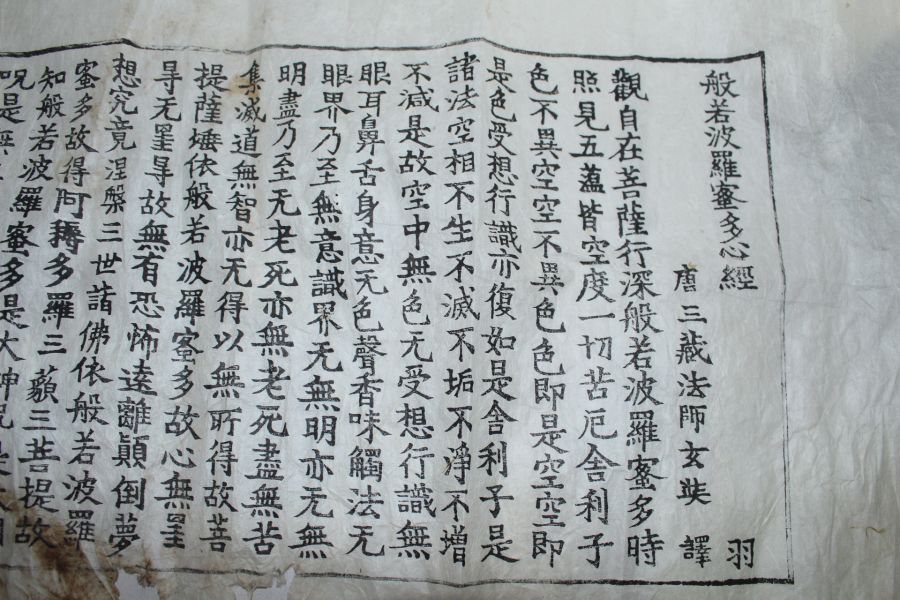 般若波羅蜜多心經 羽
唐三藏法師玄奘 譯
觀自在菩薩行深般若波羅蜜多時
照見五蓋皆空度一切苦厄舍利子
色不異空空不異色色即是空空即
是色受想行識亦復如是舍利子是
諸法空相不生不滅不垢不淨不增
不減是故空中無色无受想行識無
眼耳鼻舌身意无色聲香味觸法无
眼界乃至無意識界无無明亦无無
明盡乃至无老死亦無老死盡無苦
集滅道無智亦无得以無所得故菩
提薩埵依般若波羅蜜多故心無罣
㝵无罣㝵故無有恐怖遠離顛倒夢
想究竟涅槃三世諸佛依般若波羅
蜜多故得阿耨多羅三藐三菩提故
知般若波羅蜜多是大神呪是大明
呪是無